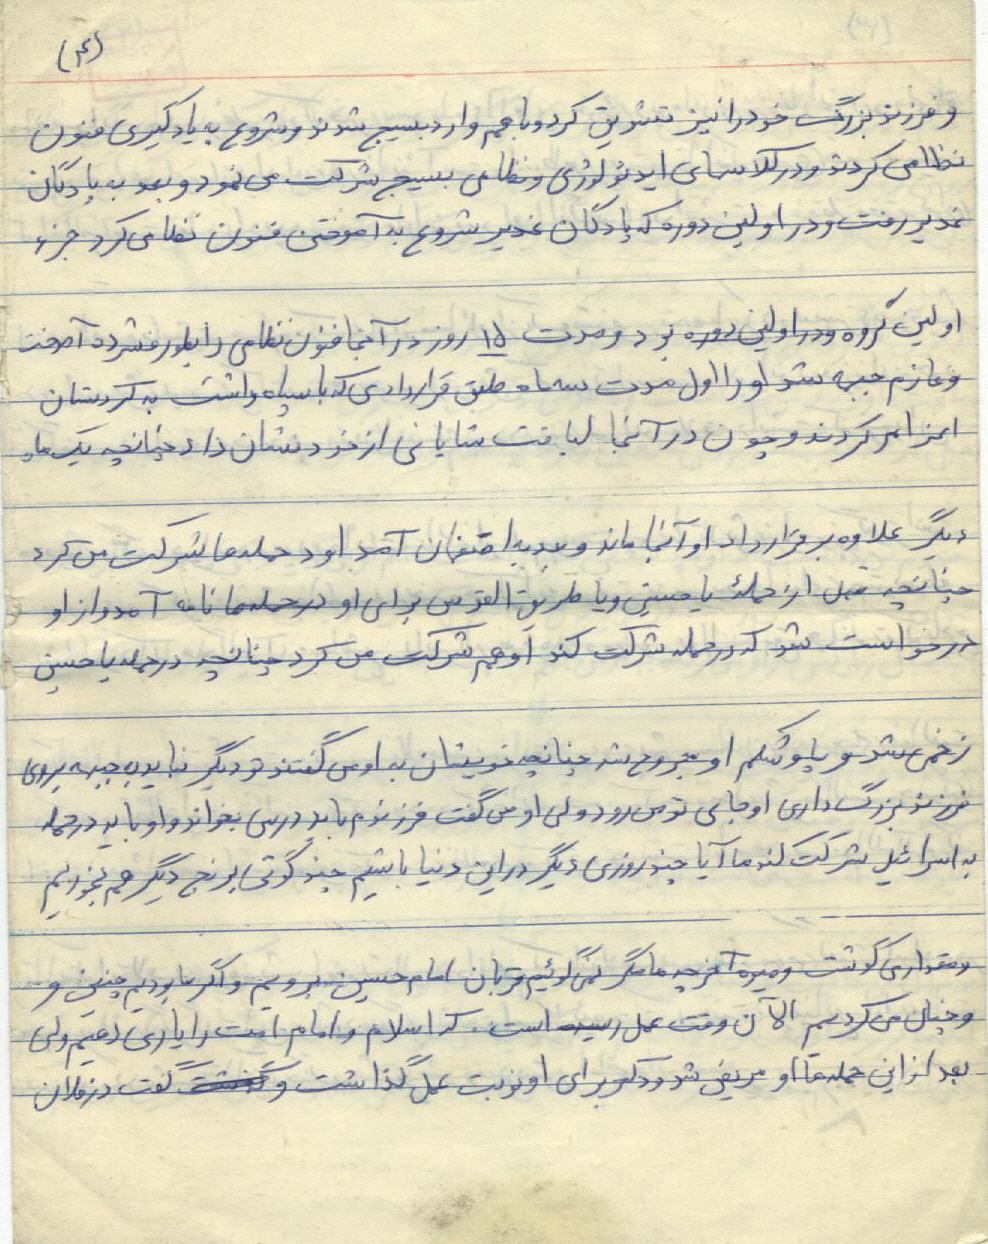 (۴)
و فرزند بزرگ خود را نیز تشویق کرد و باهم وارد بسیج شدند و شروع به یادگیری فنون
نظامی کردند و در کلاسهای ایدئولوژی و نظامی بسیج شرکت می نمود و بعد به پادگان
غدیر رفت و در اولین دوره که پادگان غدیر شروع به آموختن فنون نظامی کرد جزء
اولین گروه و در اولین دوره بود و مدت ۱۵ روز در آنجا فنون نظامی را بطور فشرده آموخت
و عازم جبهه شد او را اول مدت سه ماه طبق قراردادی که با سپاه داشت به کردستان
اعزام کردند و چون در آنجا لیاقت شایانی از خود نشان داد چنانچه یک ماه
دیگر علاوه بر قرارداد او آنجا ماند و بعد به اصفهان آمد او در حمله ها شرکت می کرد
چنانچه قبل از حملهٔ یا حسین و یا طریق القدس برای او در حمله ها نامه آمد و از او
درخواست شد که در حمله شرکت کند او هم شرکت می کرد چنانچه در حمله یا حسین
زخمی شد و پا و شکم او مجروح شد چنانچه خویشان به او می گفتند تو دیگر نباید به جبهه بروی
فرزند بزرگ داری او جای تو می رود ولی او می گفت فرزندم باید درس بخواند و او باید در حمله
به اسرائیل شرکت کند ما آیا چند روزی دیگر در این دنیا باشیم چند گونی برنج دیگر هم بخوریم
و مقداری گوشت و میوه آخر چه ما مگر نمی گوئیم قربان امام حسین برویم و اگر ما بودیم چنین و
و چنان می کردیم الآن وقت عمل رسیده است . که اسلام و امام امت را یاری دهیم ولی
بعد از این حمله ها او مریض شد و دکتر برای او نوبت عمل گذاشت و گفت در فلان